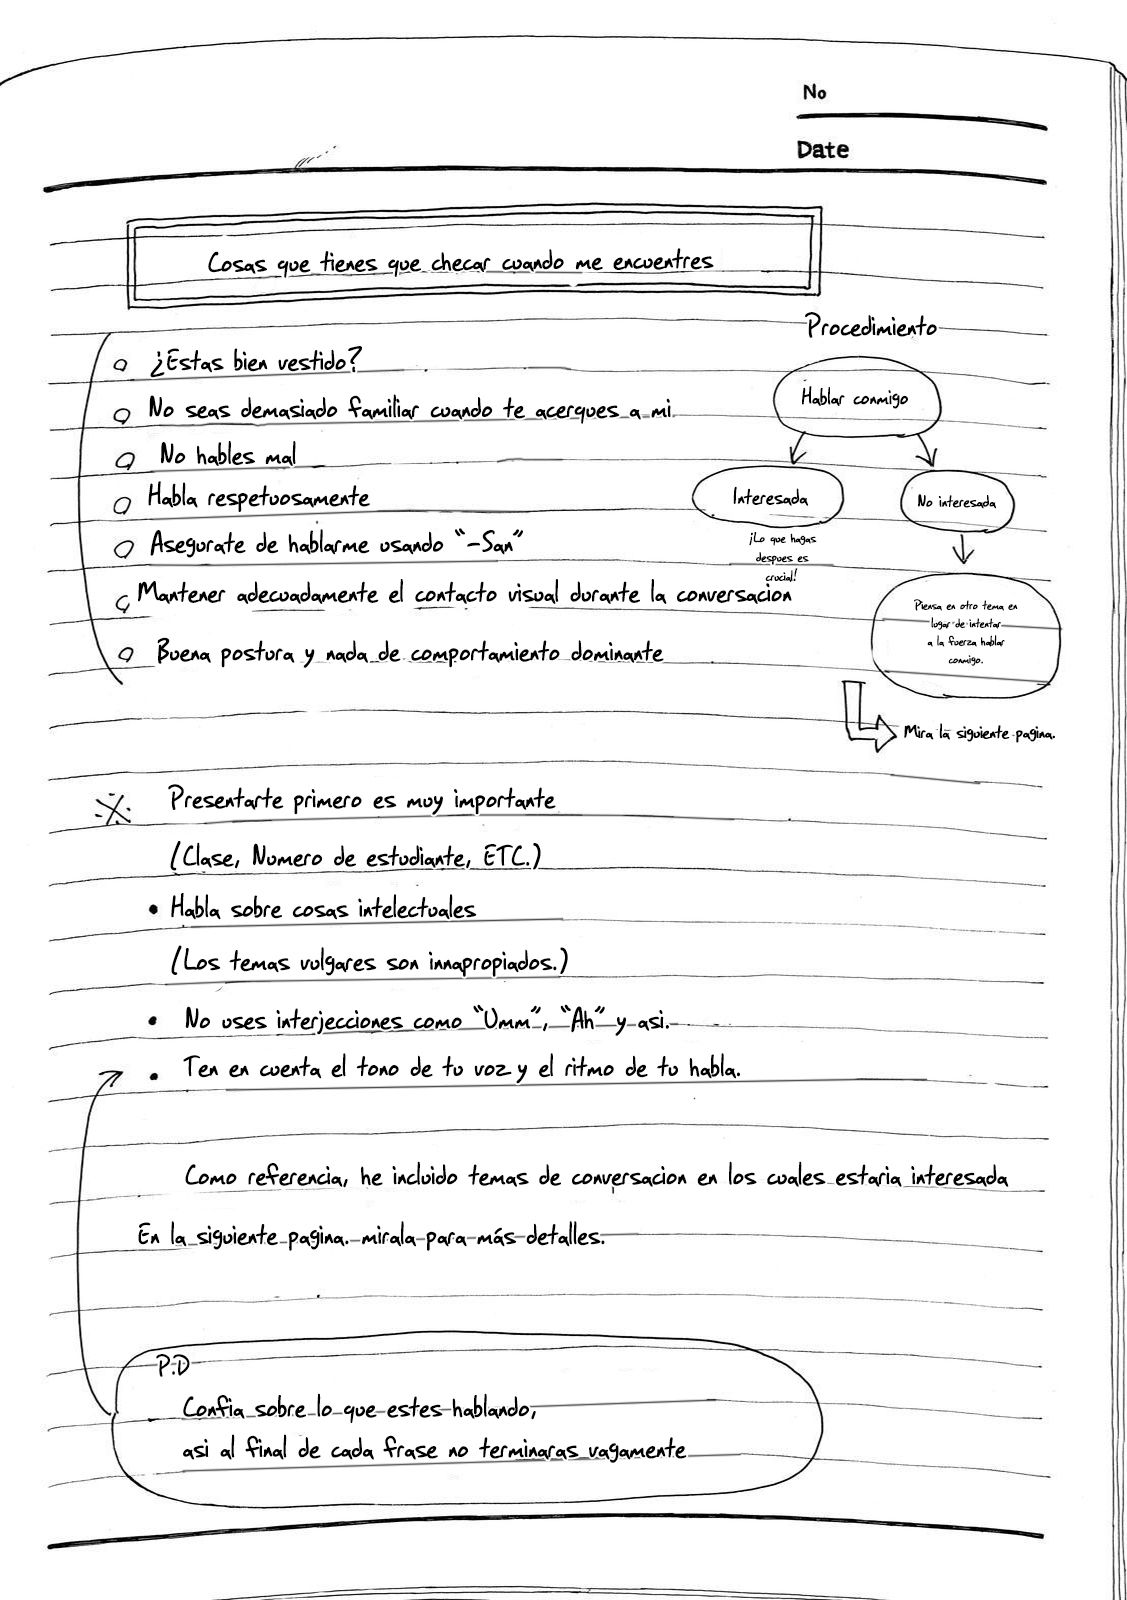 No
Date
Cosas que tienes que checar cuando me encuentres
¿Estas bien vestido?
No seas demasiado familiar cuando te acerques a mi.
No hables mal
Habla respetuosamente
Asegurate de hablarme usando "-San"
Mantener adecuadamente el contacto visual durante la conversacion
Buena postura y nada de comportamiento dominante
Procedimiento
Hablar conmigo
Interesada
¡Lo que hagas
despues es
crucial!
No interesada
Piensa en otro tema en
lugar de intentar
a la fuerza hablar
conmigo.
Mira la siguiente pagina.
※ Presentarte primero es muy importante
(Clase, Numero de estudiante, ETC.)
• Habla sobre cosas intelectuales
(Los temas vulgares son innapropiados.)
• No uses interjecciones como "Umm", "Ah" y asi.
• Ten en cuenta el tono de tu voz y el ritmo de tu habla.
Como referencia, he incluido temas de conversacion en los cuales estaria interesada
En la siguiente pagina. mirala para más detalles.
P.D
Confia sobre lo que estes hablando,
asi al final de cada frase no terminaras vagamente